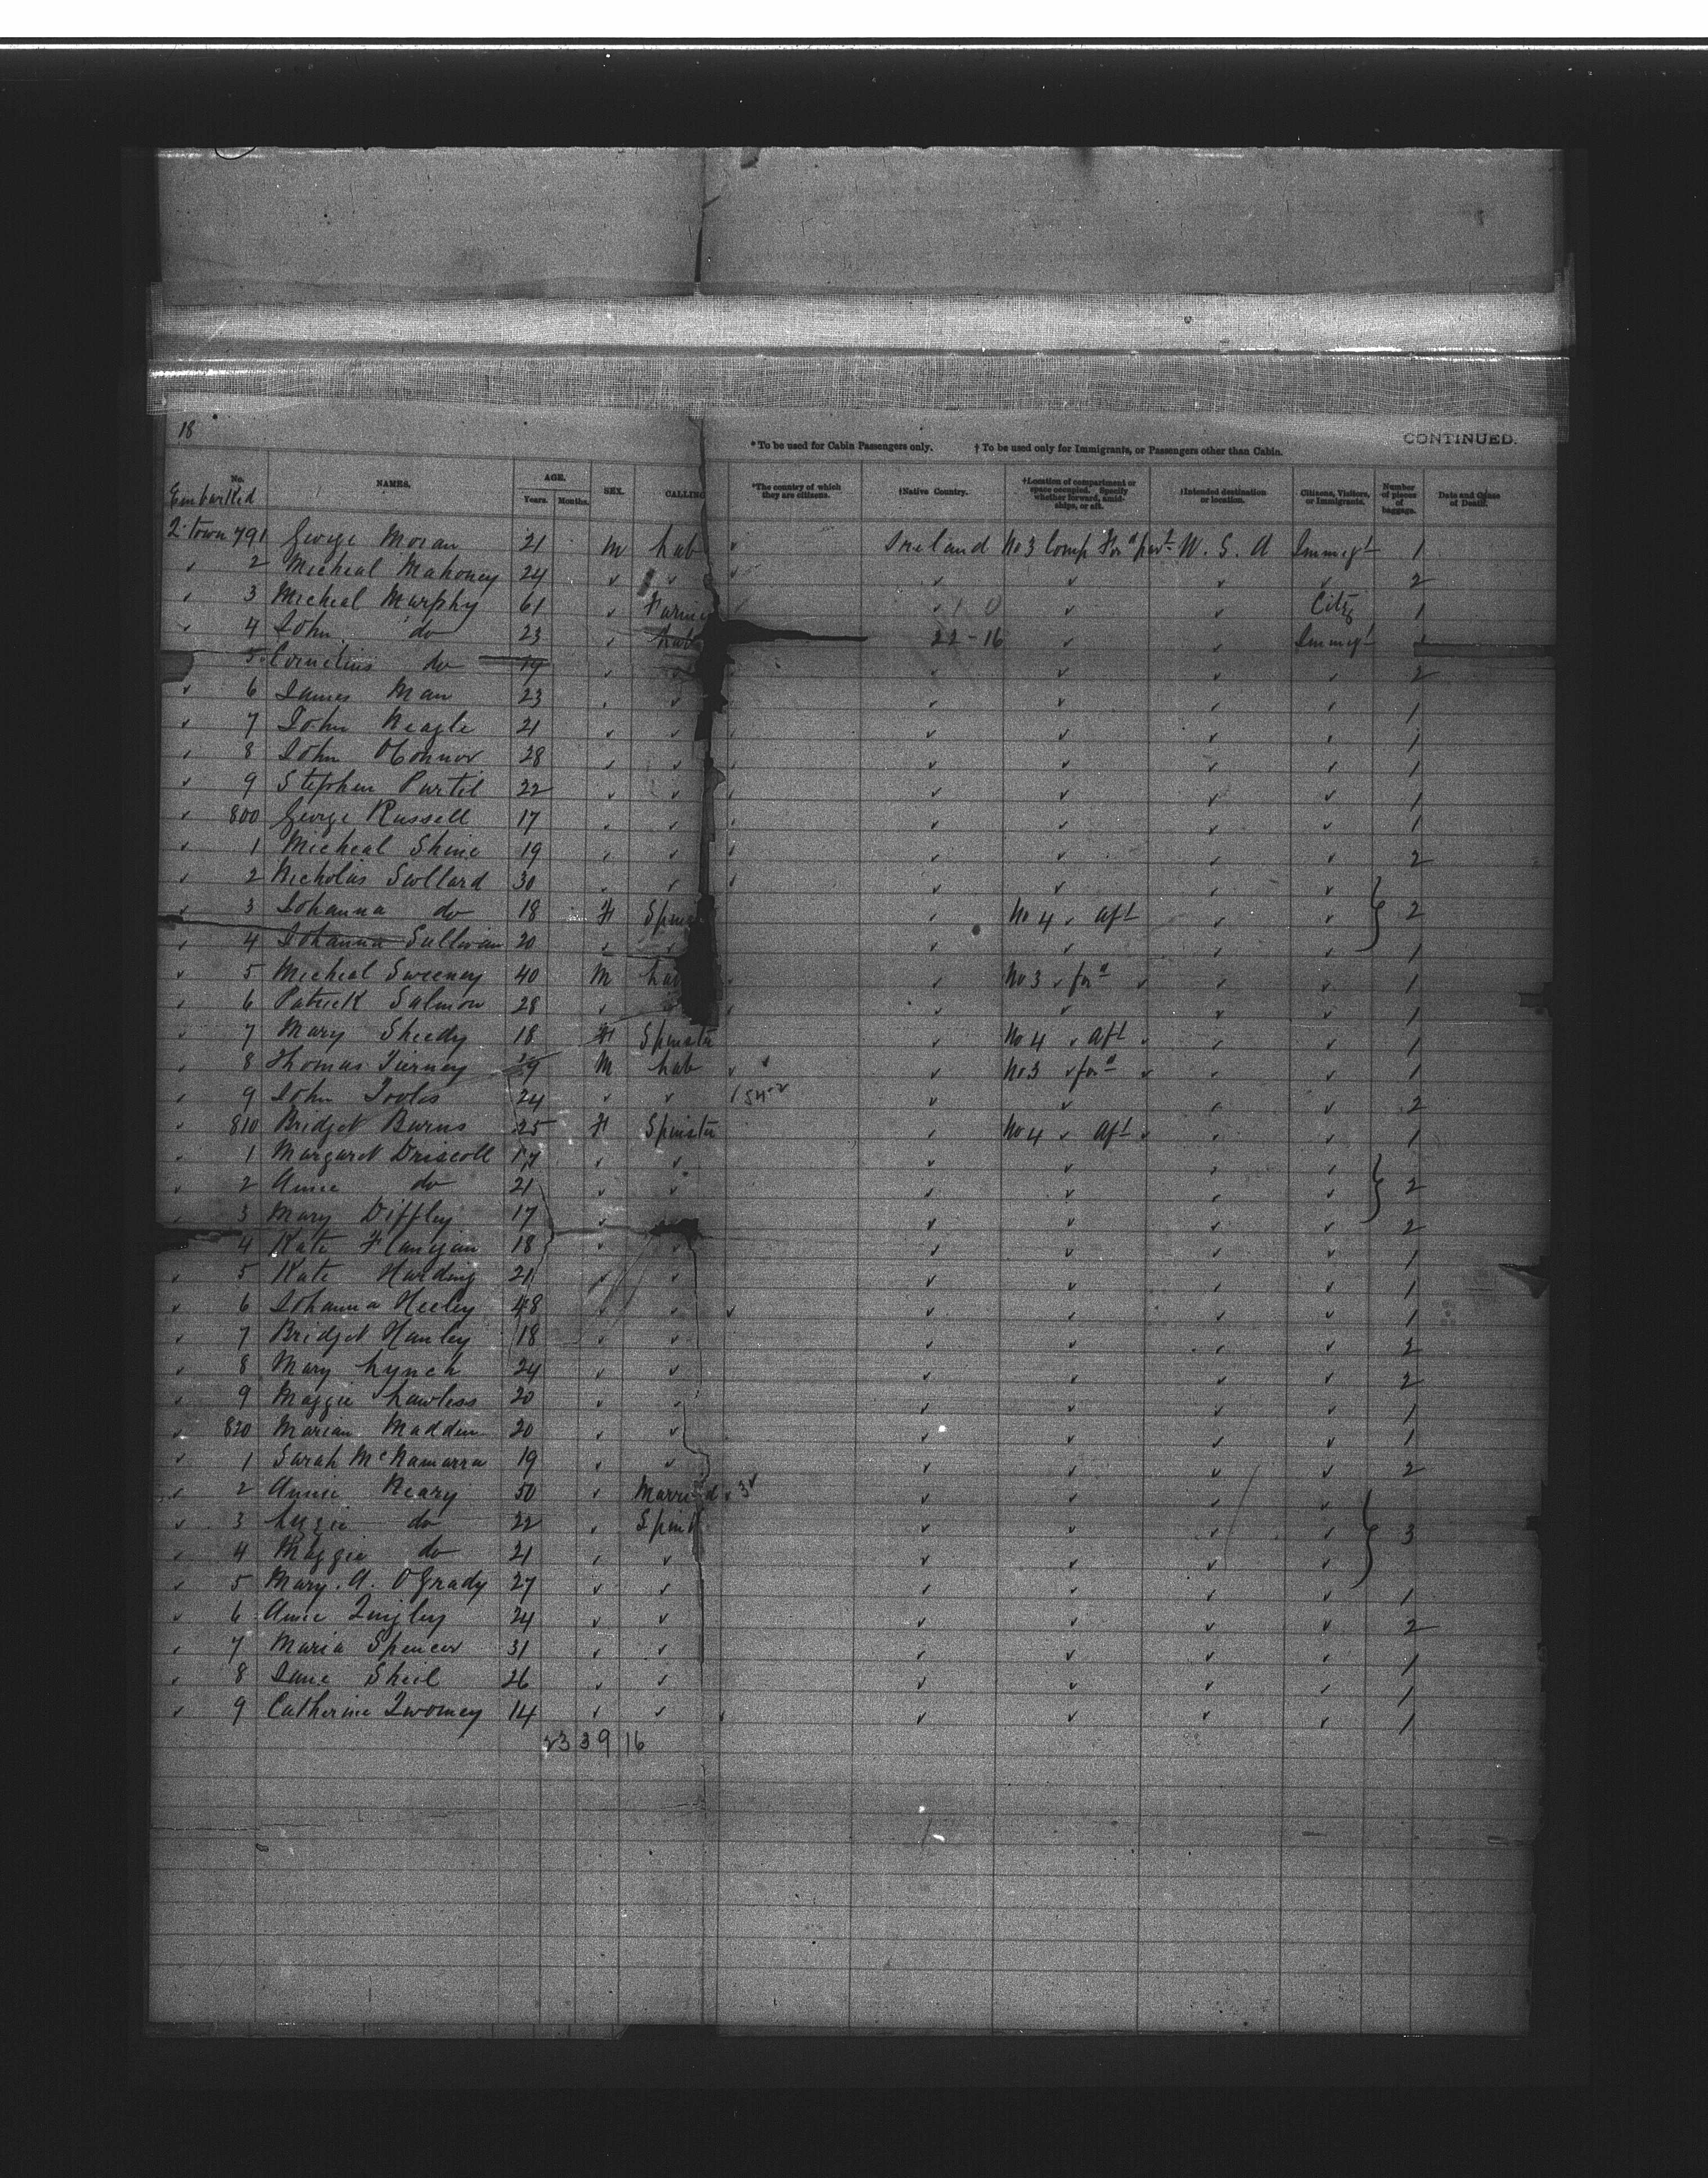 18
* To be used for Cabin Passengers only. † To be used only for Immigrants, or Passengers other than Cabin. CONTINUED.
No. NAMES. AGE. Years. Months. SEX. CALLING *The country of which they are citizens. †Native Country. †Location of compartment or space occupied. Specify whether forward, amidships, or aft. †Intended destination or location. Citizens, Visitors, or Immigrants. Number of pieces of baggage. Date and Cause of Death.
Embarked
Q town 791 George Moran 21 M Lab ✓ Ireland No 3 Comp For'd part U. S. A Immigt 1
✓ 2 Micheal Mahoney 24 ✓ ✓ ✓ ✓ ✓ ✓ ✓ 2
✓ 3 Micheal Murphy 61 ✓ Farmer ✓ ✓ ✓ ✓ Citz 1
✓ 4 John do 23 ✓ Lab 22-16 ✓ ✓ Immigt
5 Cornelius do 19 ✓ ✓ ✓ ✓ ✓ ✓ 2
✓ 6 James Man 23 ✓ ✓ ✓ ✓ ✓ ✓ 1
✓ 7 John Neagle 21 ✓ ✓ ✓ ✓ ✓ ✓ 1
✓ 8 John OConnor 28 ✓ ✓ ✓ ✓ ✓ ✓ 1
✓ 9 Stephen Purtil 22 ✓ ✓ ✓ ✓ ✓ ✓ 1
✓ 800 George Russell 17 ✓ ✓ ✓ ✓ ✓ ✓ 1
✓ 1 Micheal Shine 19 ✓ ✓ ✓ ✓ ✓ ✓ 2
✓ 2 Nicholas Scollard 30 ✓ ✓ ✓ ✓ ✓ ✓
✓ 3 Johanna do 18 F Spins ✓ No 4 ✓ aft ✓ ✓ } 2
✓ 4 Johanna Sullivan 20 ✓ ✓ ✓ ✓ ✓ ✓ 1
✓ 5 Micheal Sweeney 40 M Lab ✓ ✓ No 3 ✓ for'd ✓ ✓ ✓ 1
✓ 6 Patrick Salmon 28 ✓ ✓ ✓ ✓ ✓ 1
✓ 7 Mary Sheedy 18 F Spinster ✓ No 4 ✓ aft ✓ ✓ ✓ 1
✓ 8 Thomas Tierney M Lab ✓ ✓ No 3 ✓ for'd ✓ ✓ ✓ 1
✓ 9 John Tooles 24 ✓ ✓ ✓ ✓ ✓ ✓ 2
✓ 810 Bridget Burns 25 F Spinster ✓ No 4 ✓ aft ✓ ✓ ✓ 1
✓ 1 Margaret Driscoll 17 ✓ ✓ ✓ ✓ ✓ ✓
✓ 2 Annie do 21 ✓ ✓ ✓ ✓ ✓ ✓ } 2
✓ 3 Mary Diffley 17 ✓ ✓ ✓ ✓ ✓ 2
4 Kate Flanigan 18 ✓ ✓ ✓ ✓ ✓ ✓ 1
✓ 5 Kate Harding 21 ✓ ✓ ✓ ✓ ✓ ✓ 1
✓ 6 Johanna Heeley 48 ✓ ✓ ✓ ✓ ✓ ✓ ✓ 1
✓ 7 Bridget Hanley 18 ✓ ✓ ✓ ✓ ✓ ✓ 2
✓ 8 Mary Lynch 24 ✓ ✓ ✓ ✓ ✓ ✓ 2
✓ 9 Maggie Lawless 20 ✓ ✓ ✓ ✓ ✓ ✓ 1
✓ 820 Marian Madden 20 ✓ ✓ ✓ ✓ ✓ ✓ 1
✓ 1 Sarah McNamarra 19 ✓ ✓ ✓ ✓ ✓ ✓ 2
✓ 2 Annie Neary 50 ✓ Married ✓ ✓ ✓ ✓
✓ 3 Lizzie do 22 ✓ Spins ✓ ✓ ✓ ✓ } 3
✓ 4 Maggie do 21 ✓ ✓ ✓ ✓ ✓ ✓
✓ 5 Mary. A. OGrady 27 ✓ ✓ ✓ ✓ ✓ ✓ 1
✓ 6 Annie Quigley 24 ✓ ✓ ✓ ✓ ✓ ✓ 2
✓ 7 Maria Spencer 31 ✓ ✓ ✓ ✓ ✓ ✓ 1
✓ 8 Jane Sheil 26 ✓ ✓ ✓ ✓ ✓ ✓ 1
✓ 9 Catherine Twomey 14 ✓ ✓ ✓ ✓ ✓ ✓ ✓ 1
23 39 16